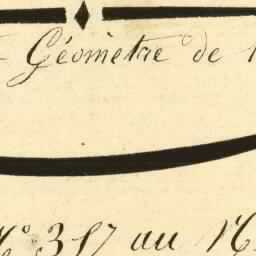 Géomètre de
N° 317 au N